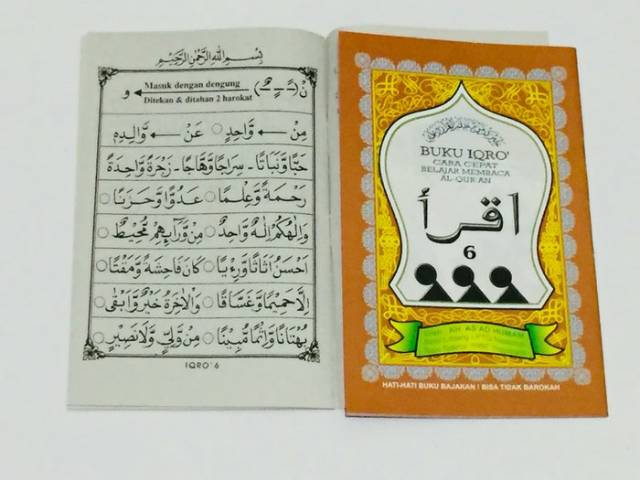 بِسْمِ اللّٰهِ الرَّحْمٰنِ الرَّحِيْمِ
نْ (ـًـ ـٍـ ـٌـ) ← و
Masuk dengan dengung
Ditekan & ditahan 2 harokat
مِنْ ← وَّاحِدٍ ○ عَنْ ← وَّالِدِهٖ
حَبًّا وَّنَبَاتًا - سِرَاجًا وَّهَّاجًا - زَجْرَةٌ وَّاحِدَةٌ
رَحْمَةً وَّعِلْمًا ○ عَدُوًّا وَّحَزَنًا ○
وَاِلٰهُكُمْ اِلٰهٌ وَّاحِدٌ ○ مِنْ وَّرَآئِهِمْ مُّحِيْطٌ ○
اَحْسَنُ اَثَاثًا وَّرِءْيًا ○ كَانَ فَاحِشَةً وَّمَقْتًا ○
اِلَّا حَمِيْمًا وَّغَسَّاقًا ○ وَالْاٰخِرَةُ خَيْرٌ وَّاَبْقٰى ○
بُهْتَانًا وَّاِثْمًا مُّبِيْنًا ○ مِنْ وَّلِيٍّ وَّلَا نَصِيْرٍ ○
IQRO' 6
BUKU IQRO'
CARA CEPAT
BELAJAR MEMBACA
AL-QUR'AN
اقرأ
6
KH. AS'AD HUMAM
HATI-HATI BUKU BAJAKAN ! BISA TIDAK BAROKAH